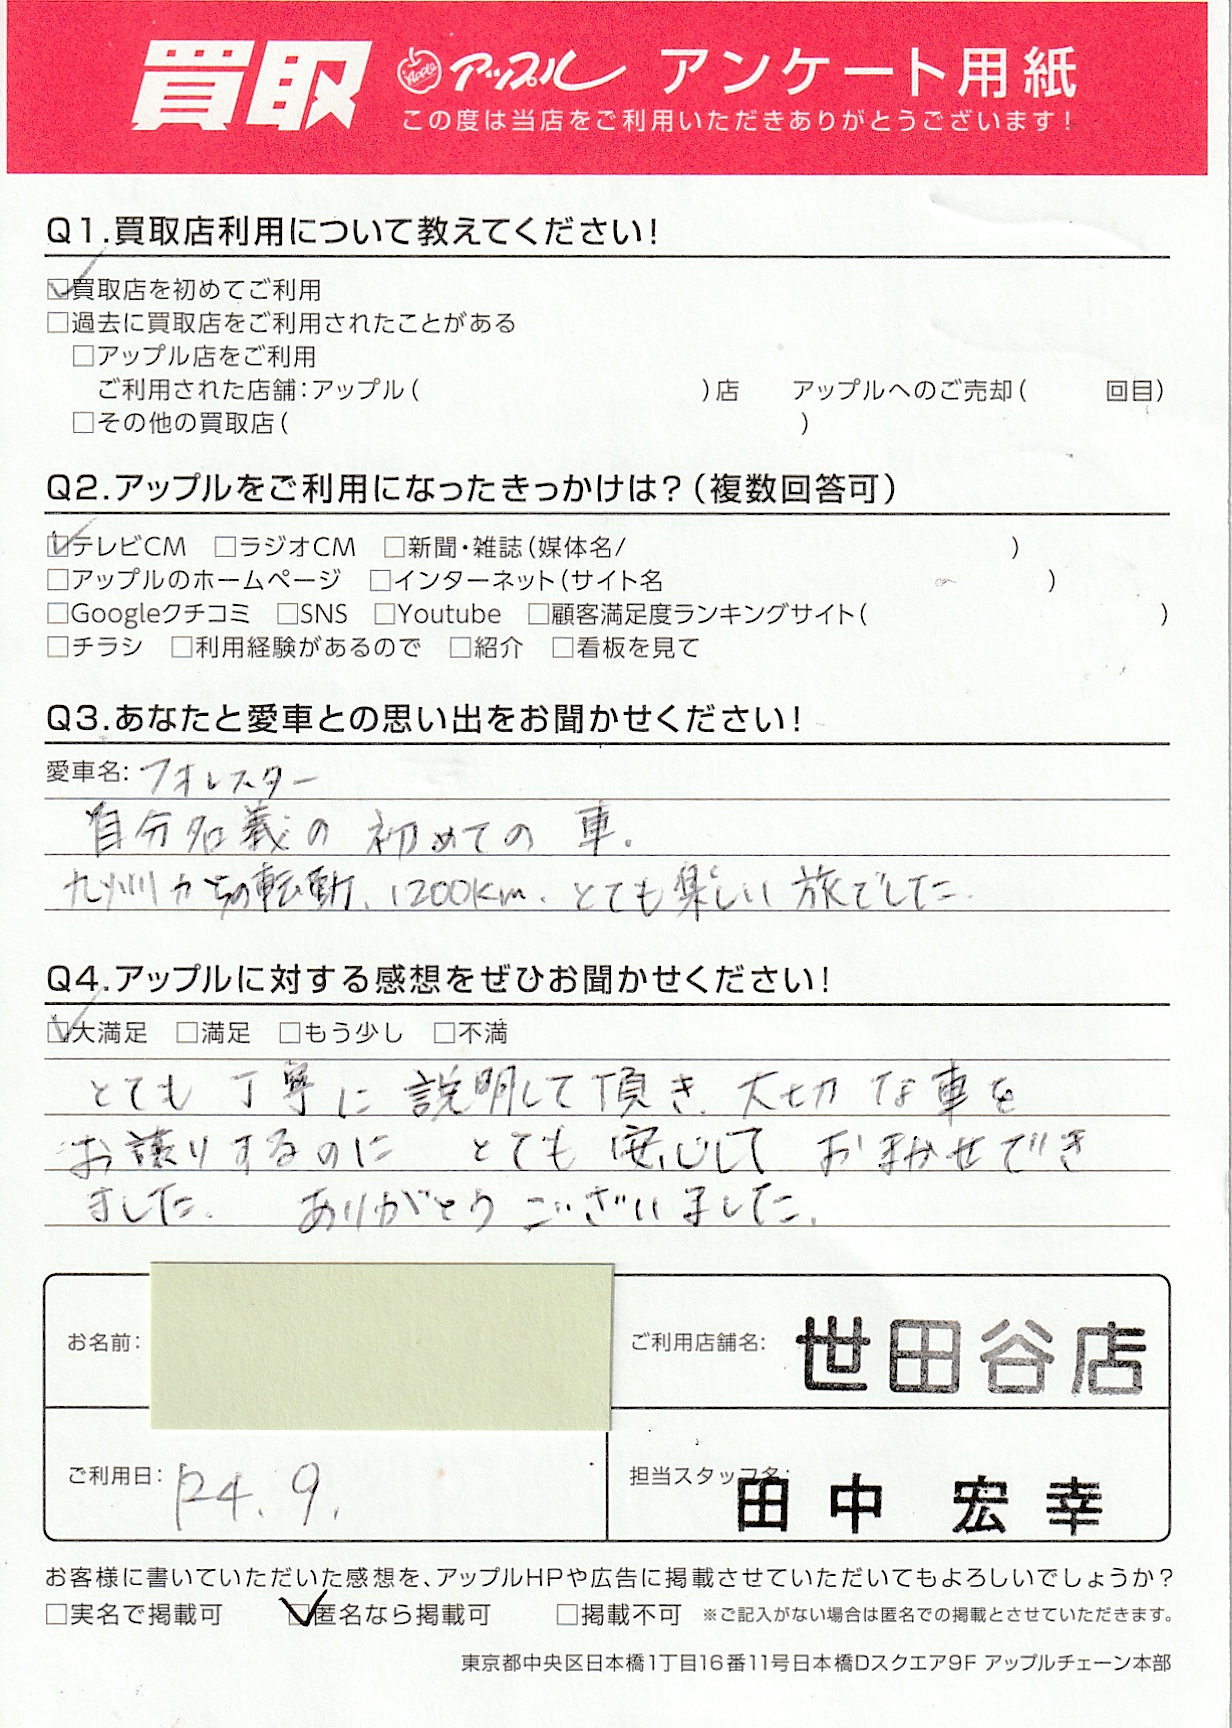 買取 Apple アップル アンケート用紙
この度は当店をご利用いただきありがとうございます!
Q1.買取店利用について教えてください!
☑買取店を初めてご利用
□過去に買取店をご利用されたことがある
□アップル店をご利用
ご利用された店舗:アップル( )店 アップルへのご売却( 回目)
□その他の買取店( )
Q2.アップルをご利用になったきっかけは?(複数回答可)
☑テレビCM □ラジオCM □新聞・雑誌(媒体名/ )
□アップルのホームページ □インターネット(サイト名 )
□Googleクチコミ □SNS □Youtube □顧客満足度ランキングサイト( )
□チラシ □利用経験があるので □紹介 □看板を見て
Q3.あなたと愛車との思い出をお聞かせください!
愛車名: フォレスター
自分名義の初めての車.
九州からの転勤、1200km. とても楽しい旅でした.
Q4.アップルに対する感想をぜひお聞かせください!
☑大満足 □満足 □もう少し □不満
とても丁寧に説明して頂き、大切な車を
お譲りするのに とても安心して おまかせでき
ました. ありがとうございました.
お名前: ご利用店舗名: 世田谷店
ご利用日: R4.9. 担当スタッフ名: 田中 宏幸
お客様に書いていただいた感想を、アップルHPや広告に掲載させていただいてもよろしいでしょうか?
□実名で掲載可 ☑匿名なら掲載可 □掲載不可 ※ご記入がない場合は匿名での掲載とさせていただきます。
東京都中央区日本橋1丁目16番11号日本橋Dスクエア9F アップルチェーン本部